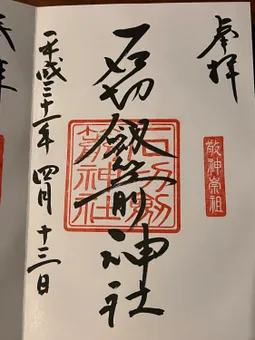 奉拝
敬神崇祖
石切劔箭神社
石切劔
箭神社
平成三十一年 四月 十三日